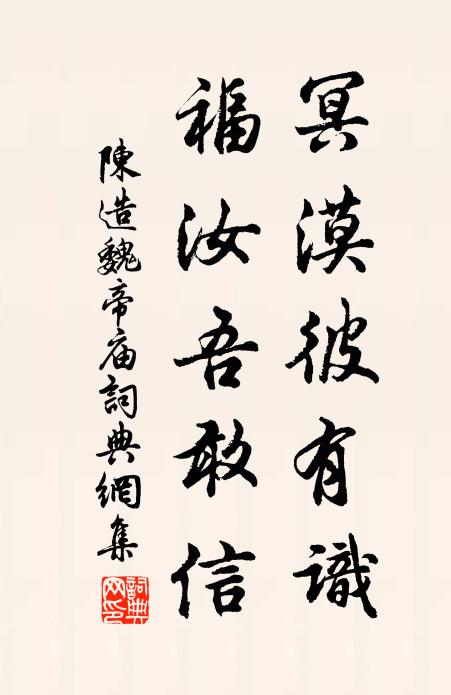 冥漠彼有識
福汝吾敢信
陳造魏帝庙詞典網集
詞典網印